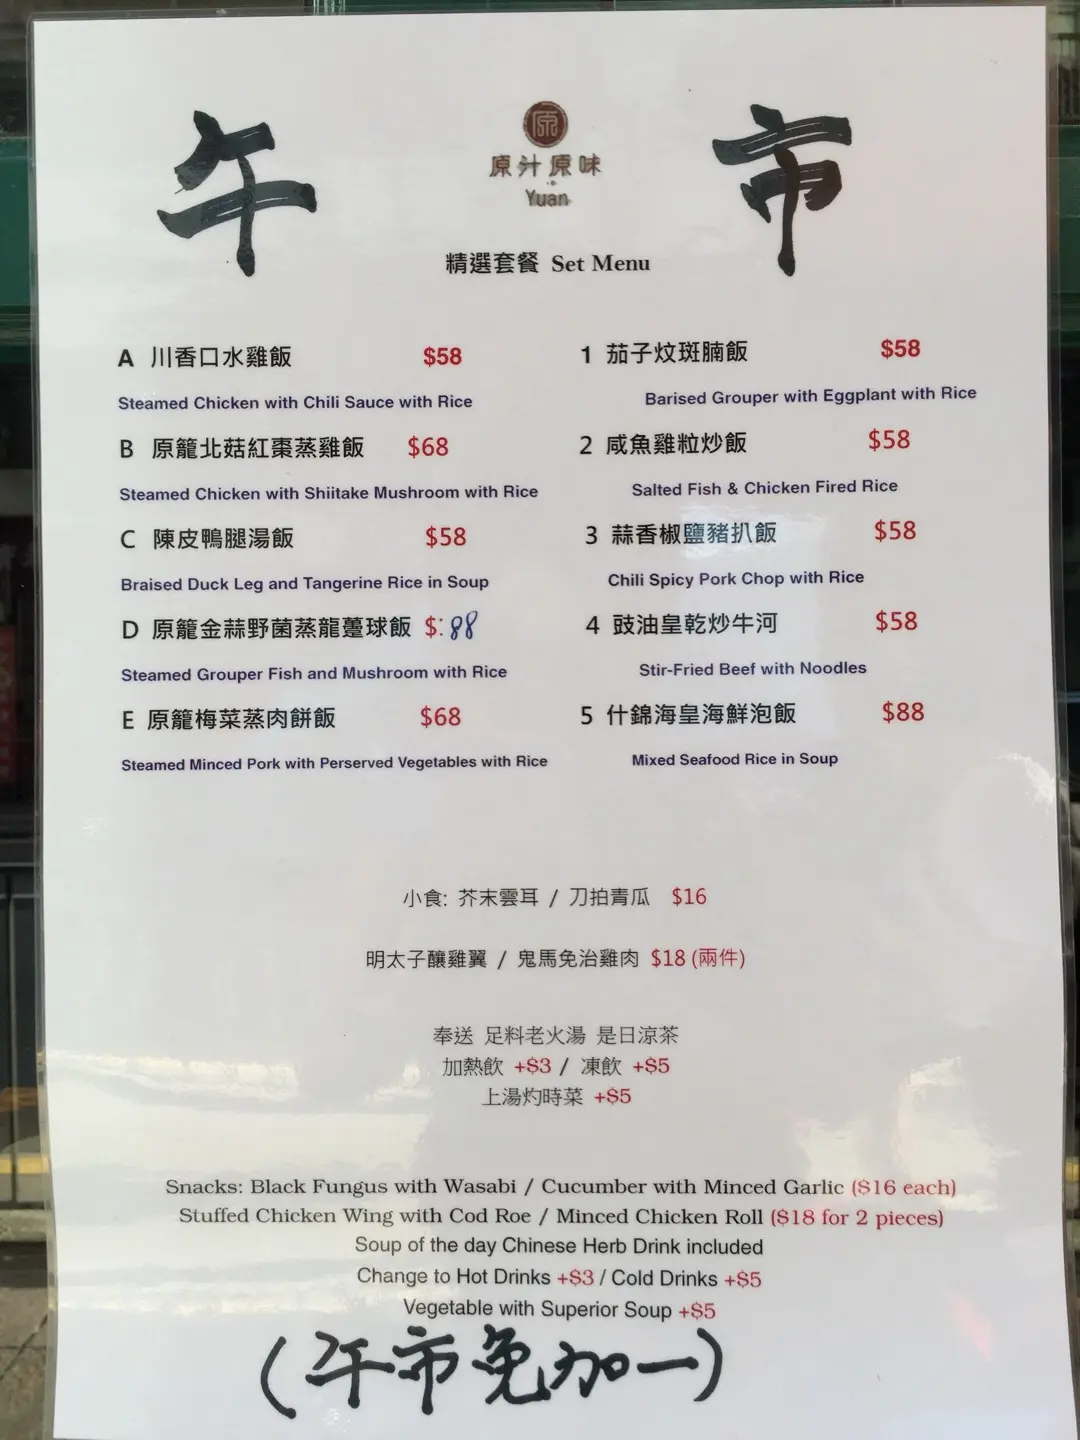 午市
原
原汁原味
Yuan
精選套餐 Set Menu
A 川香口水雞飯 $58
Steamed Chicken with Chili Sauce with Rice
B 原籠北菇紅棗蒸雞飯 $68
Steamed Chicken with Shiitake Mushroom with Rice
C 陳皮鴨腿湯飯 $58
Braised Duck Leg and Tangerine Rice in Soup
D 原籠金蒜野菌蒸龍躉球飯 $:88
Steamed Grouper Fish and Mushroom with Rice
E 原籠梅菜蒸肉餅飯 $68
Steamed Minced Pork with Perserved Vegetables with Rice
1 茄子炆斑腩飯 $58
Barised Grouper with Eggplant with Rice
2 咸魚雞粒炒飯 $58
Salted Fish & Chicken Fired Rice
3 蒜香椒鹽豬扒飯 $58
Chili Spicy Pork Chop with Rice
4 豉油皇乾炒牛河 $58
Stir-Fried Beef with Noodles
5 什錦海皇海鮮泡飯 $88
Mixed Seafood Rice in Soup
小食: 芥末雲耳 / 刀拍青瓜 $16
明太子釀雞翼 / 鬼馬免治雞肉 $18 (兩件)
奉送 足料老火湯 是日涼茶
加熱飲 +$3 / 凍飲 +$5
上湯灼時菜 +$5
Snacks: Black Fungus with Wasabi / Cucumber with Minced Garlic ($16 each)
Stuffed Chicken Wing with Cod Roe / Minced Chicken Roll ($18 for 2 pieces)
Soup of the day Chinese Herb Drink included
Change to Hot Drinks +$3 / Cold Drinks +$5
Vegetable with Superior Soup +$5
(午市免加一)